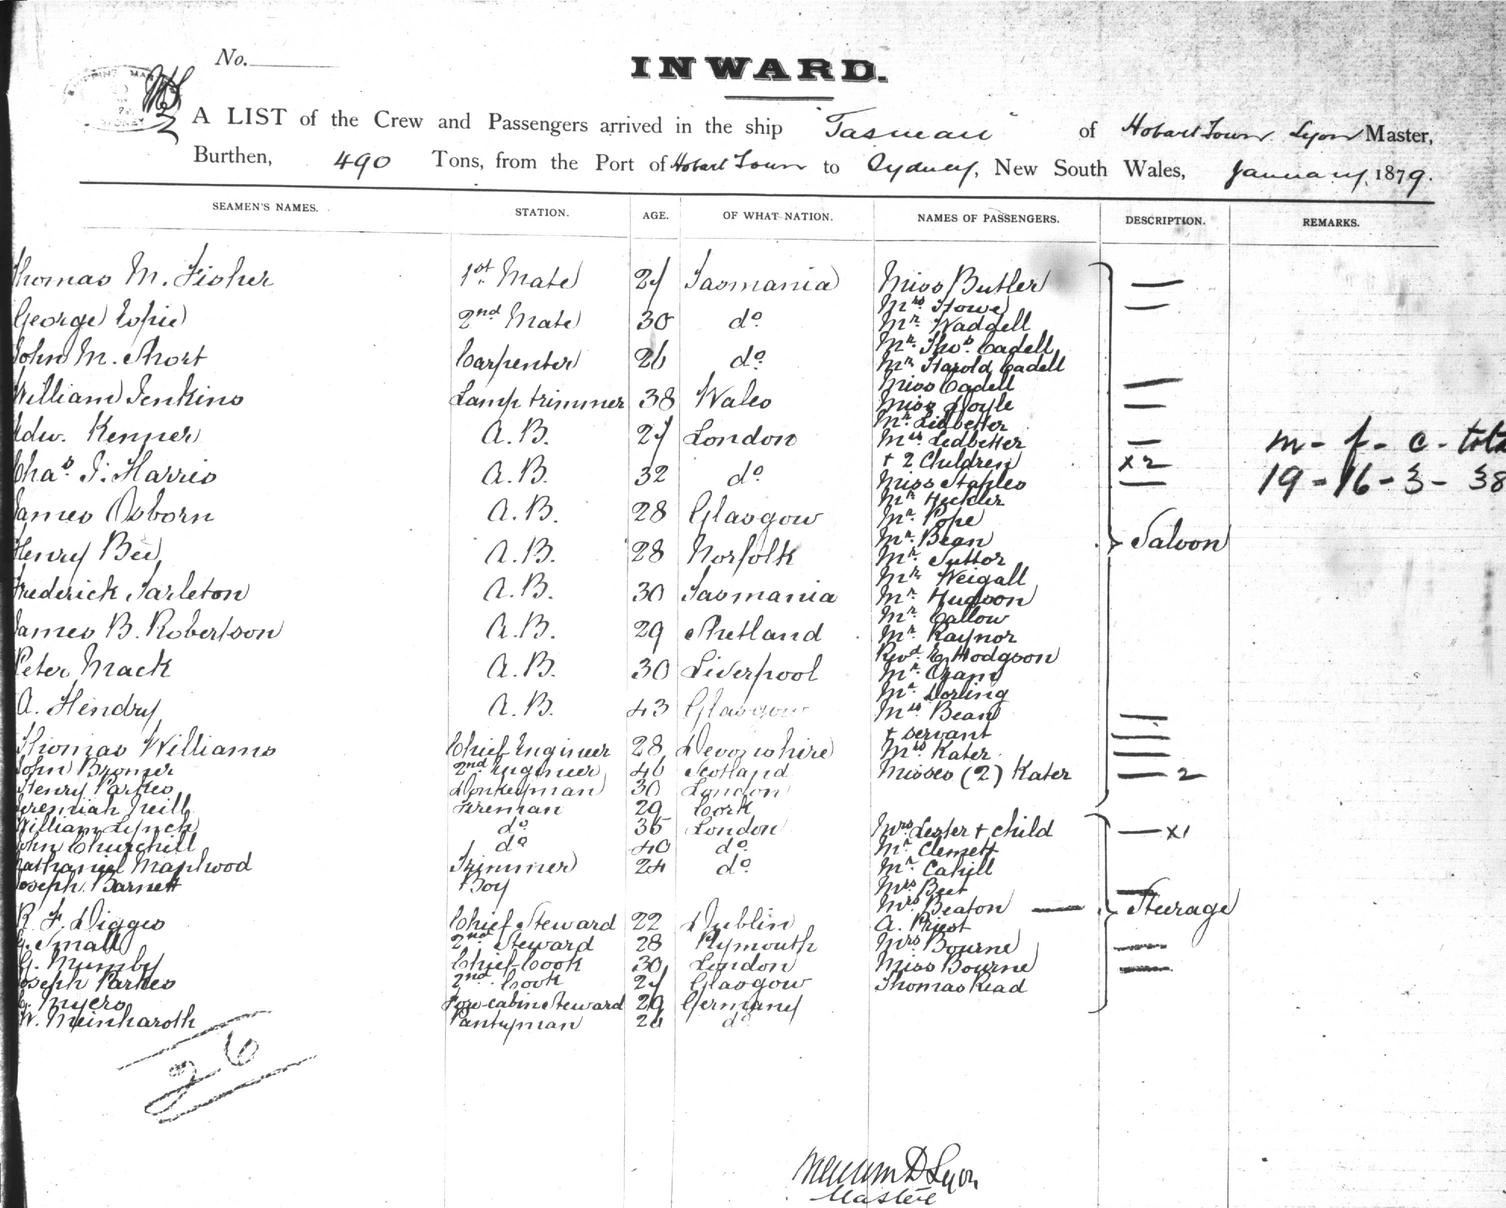 No.
INWARD.
A LIST of the Crew and Passengers arrived in the ship "Tasman" of Hobart Town Lyon Master,
Burthen, 490 Tons, from the Port of Hobart Town to Sydney, New South Wales, January, 1879.
SEAMEN'S NAMES. STATION. AGE. OF WHAT NATION. NAMES OF PASSENGERS. DESCRIPTION. REMARKS.
Thomas M. Fisher 1st Mate 27 Tasmania
George Espie 2nd Mate 30 do
John M. Short Carpenter 26 do
William Jenkins Lamp trimmer 38 Wales
Edw. Kenner A.B. 27 London
Chas. J. Harris A.B. 32 do
James Osborn A.B. 28 Glasgow
Henry Bee A.B. 28 Norfolk
Frederick Tarleton A.B. 30 Tasmania
James B. Robertson A.B. 29 Shetland
Peter Mack A.B. 30 Liverpool
A. Hendry A.B. 43 Glasgow
Thomas Williams Chief Engineer 28 Devonshire
John Bromer 2nd Engineer 46 Scotland
Henry Parkes Donkeyman 30 London
Jeremiah Neill Fireman 29 Cork
William Lynch do 35 London
John Churchill do 40 do
Nathaniel Maplwood Trimmer 24 do
Joseph Barnett Boy
R. F. Digges Chief Steward 22 Dublin
Small 2nd Steward 28 Plymouth
G. Mumby Chief Cook 30 London
Joseph Parkes 2nd Cook 27 Glasgow
Myers Fore cabin Steward 29 Germany
W. Meinharoth Pantryman do
26
Miss Butler —
Mrs Howe —
Mr. Waddell
Mr. Thos. Cadell
Mr. Harold Cadell
Miss Cadell —
Miss Doyle —
Mr. Ledbetter
Mrs Ledbetter —
+ 2 Children x 2
Miss Staples —
Mr. Heckler
Mr. Pope
Mr. Bean
Mr. Suttor
Mr. Weigall
Mr. Hudson
Mr. Callow
Mr. Raynor
Revd. E. Hodgson
Mr. Oram
Mr. Dorling
Mrs Bean —
+ servant —
Mrs Kater —
Misses (2) Kater — 2
Saloon
Mrs Lester + child — x1
Mr. Clemett
Mr. Cahill
Mrs. Beet —
Mrs. Beaton —
A. Priest
Mrs Bourne —
Miss Bourne —
Thomas Read
Steurage
m - f - c - total
19 - 16 - 3 - 38
William D Lyon
Master